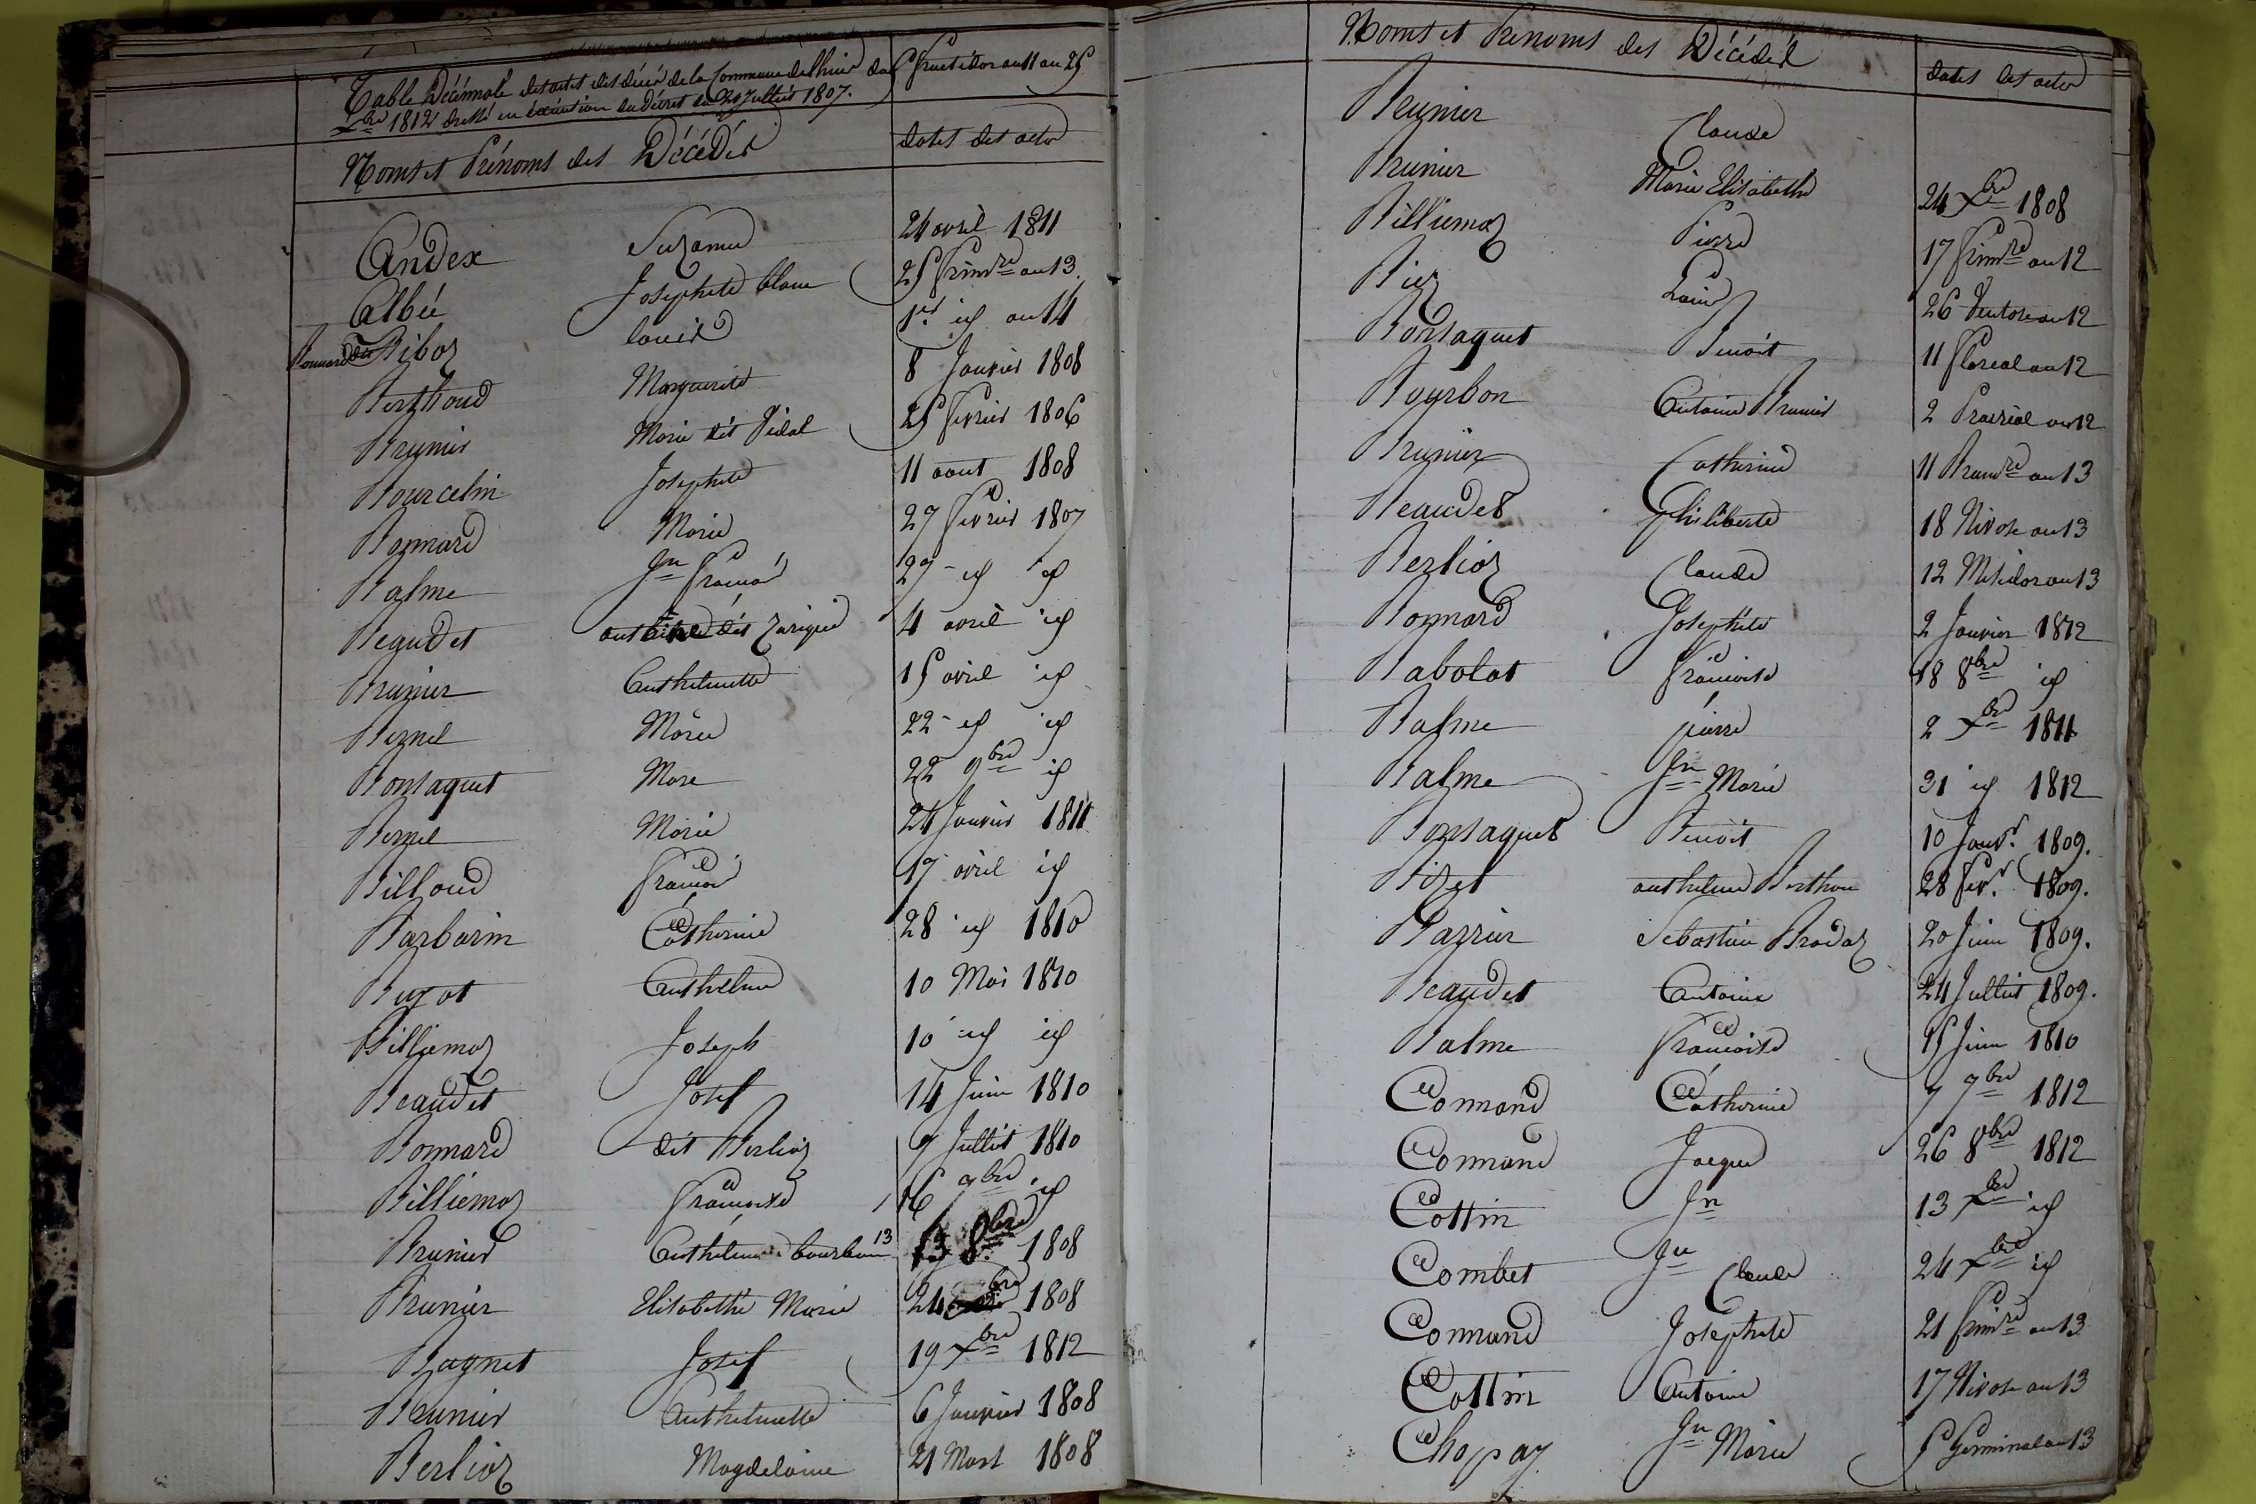 Table Décennale des actes des décès de la Commune de du 5 fructidor an 11 au 25
Xbre 1812 dressé en exécution du Décret du 20 Juillet 1807.
Noms et Prénoms des Décédés dates des actes
Andex Suzanne 24 avril 1811
Albée Josephte blanc 25 frimre an 13.
Bonnard dit Riboz louis 1er id an 14
Berthoud Marguerite 8 Janvier 1808
Brunier Marie dit Vidal 25 fevrier 1806
Bourcelin Josephte 11 aout 1808
Bonnard Marie 27 fevrier 1807
Balme Jn françois 27 id id
Beaudet dit 4 avril id
Brunier Anthelmette 15 avril id
Bernel Marie 22 id id
Bontaquet Marc 22 9bre id
Bernel Marie 24 Janvier 1811
Billoud françois 17 avril id
Barbarin Catherine 28 id 1810
Buyat Anthelme 10 Mai 1810
Billiemoz Joseph 10 id id
Beaudet Josef 14 Juin 1810
Bonnard dit Berlioz 9 Juillet 1810
Billiemoz françoise 16 9bre id
Brunier Anthelme bourbon 13 13 8bre 1808
Brunier Elisabethe Marie 24 bre 1808
Bagnet Josef 19 Xbre 1812
Brunier Anthelmette 6 Janvier 1808
Berlioz Magdelaine 21 Mars 1808
Noms et Prénoms des Décédés dates des actes
Brunier Claude
Brunier Marie Elisabethe 24 Xbre 1808
Billiemoz Pierre 17 frimre an 12
Biez Louis 26 Ventose an 12
Bontaquet Benoit 11 floreal an 12
Bourbon Antoine Brunier 2 Prairéal an 12
Brunier Catherine 11 Brumre an 13
Beaudet philiberte 18 Nivose an 13
Berlioz Claude 12 Mesidor an 13
Bonnard Josephte 2 Janvier 1812
Babolat françoise 18 8bre id
Balme pierre 2 Xbre 1811
Balme Jn Marie 31 id 1812
Bontaquet Benoit 10 Janvr. 1809.
Bizet anthelme Berthou 28 fevr. 1809.
Barrier Sebastien Brodaz 20 Juin 1809.
Beaudet Antoine 24 Juillet 1809.
Balme françoise 15 Juin 1810
Connand Catherine 7 9bre 1812
Connand Jacque 26 8bre 1812
Cottin Jn 13 Xbre id
Combet Jn Claude 24 Xbre id
Connand Josephte 21 frimre an 13
Cottin Antoine 17 Nivose an 13
Chapay Jn Marie 5 Germinal an 13